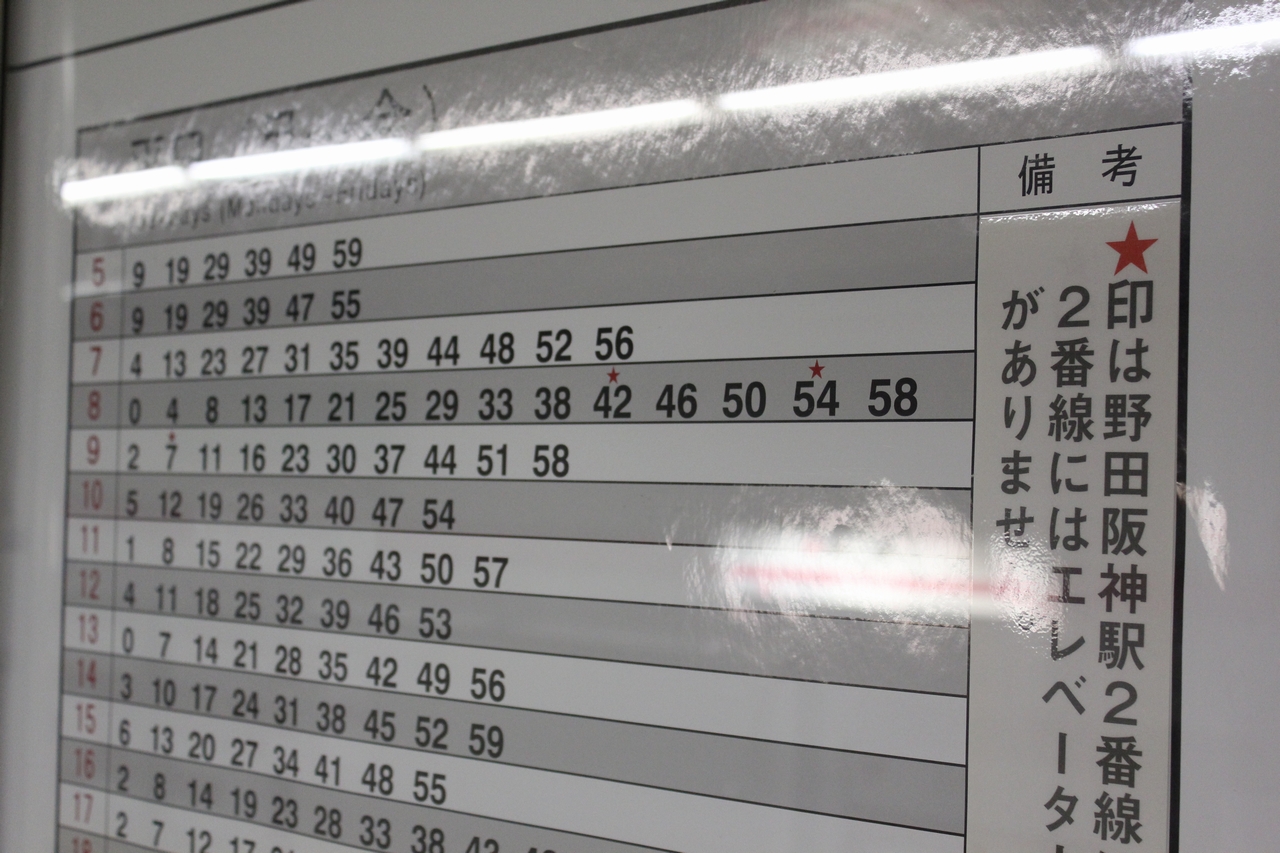 Weekdays (Mondays-Fridays)
備考
5 9 19 29 39 49 59
6 9 19 29 39 47 55
7 4 13 23 27 31 35 39 44 48 52 56
8 0 4 8 13 17 21 25 29 33 38 ★42 46 50 ★54 58
9 2 ★7 11 16 23 30 37 44 51 58
10 5 12 19 26 33 40 47 54
11 1 8 15 22 29 36 43 50 57
12 4 11 18 25 32 39 46 53
13 0 7 14 21 28 35 42 49 56
14 3 10 17 24 31 38 45 52 59
15 6 13 20 27 34 41 48 55
16 2 8 14 19 23 28 33 38
17 2 7 12 17
18
★印は野田阪神駅2番線
2番線にはエレベーター
がありませ